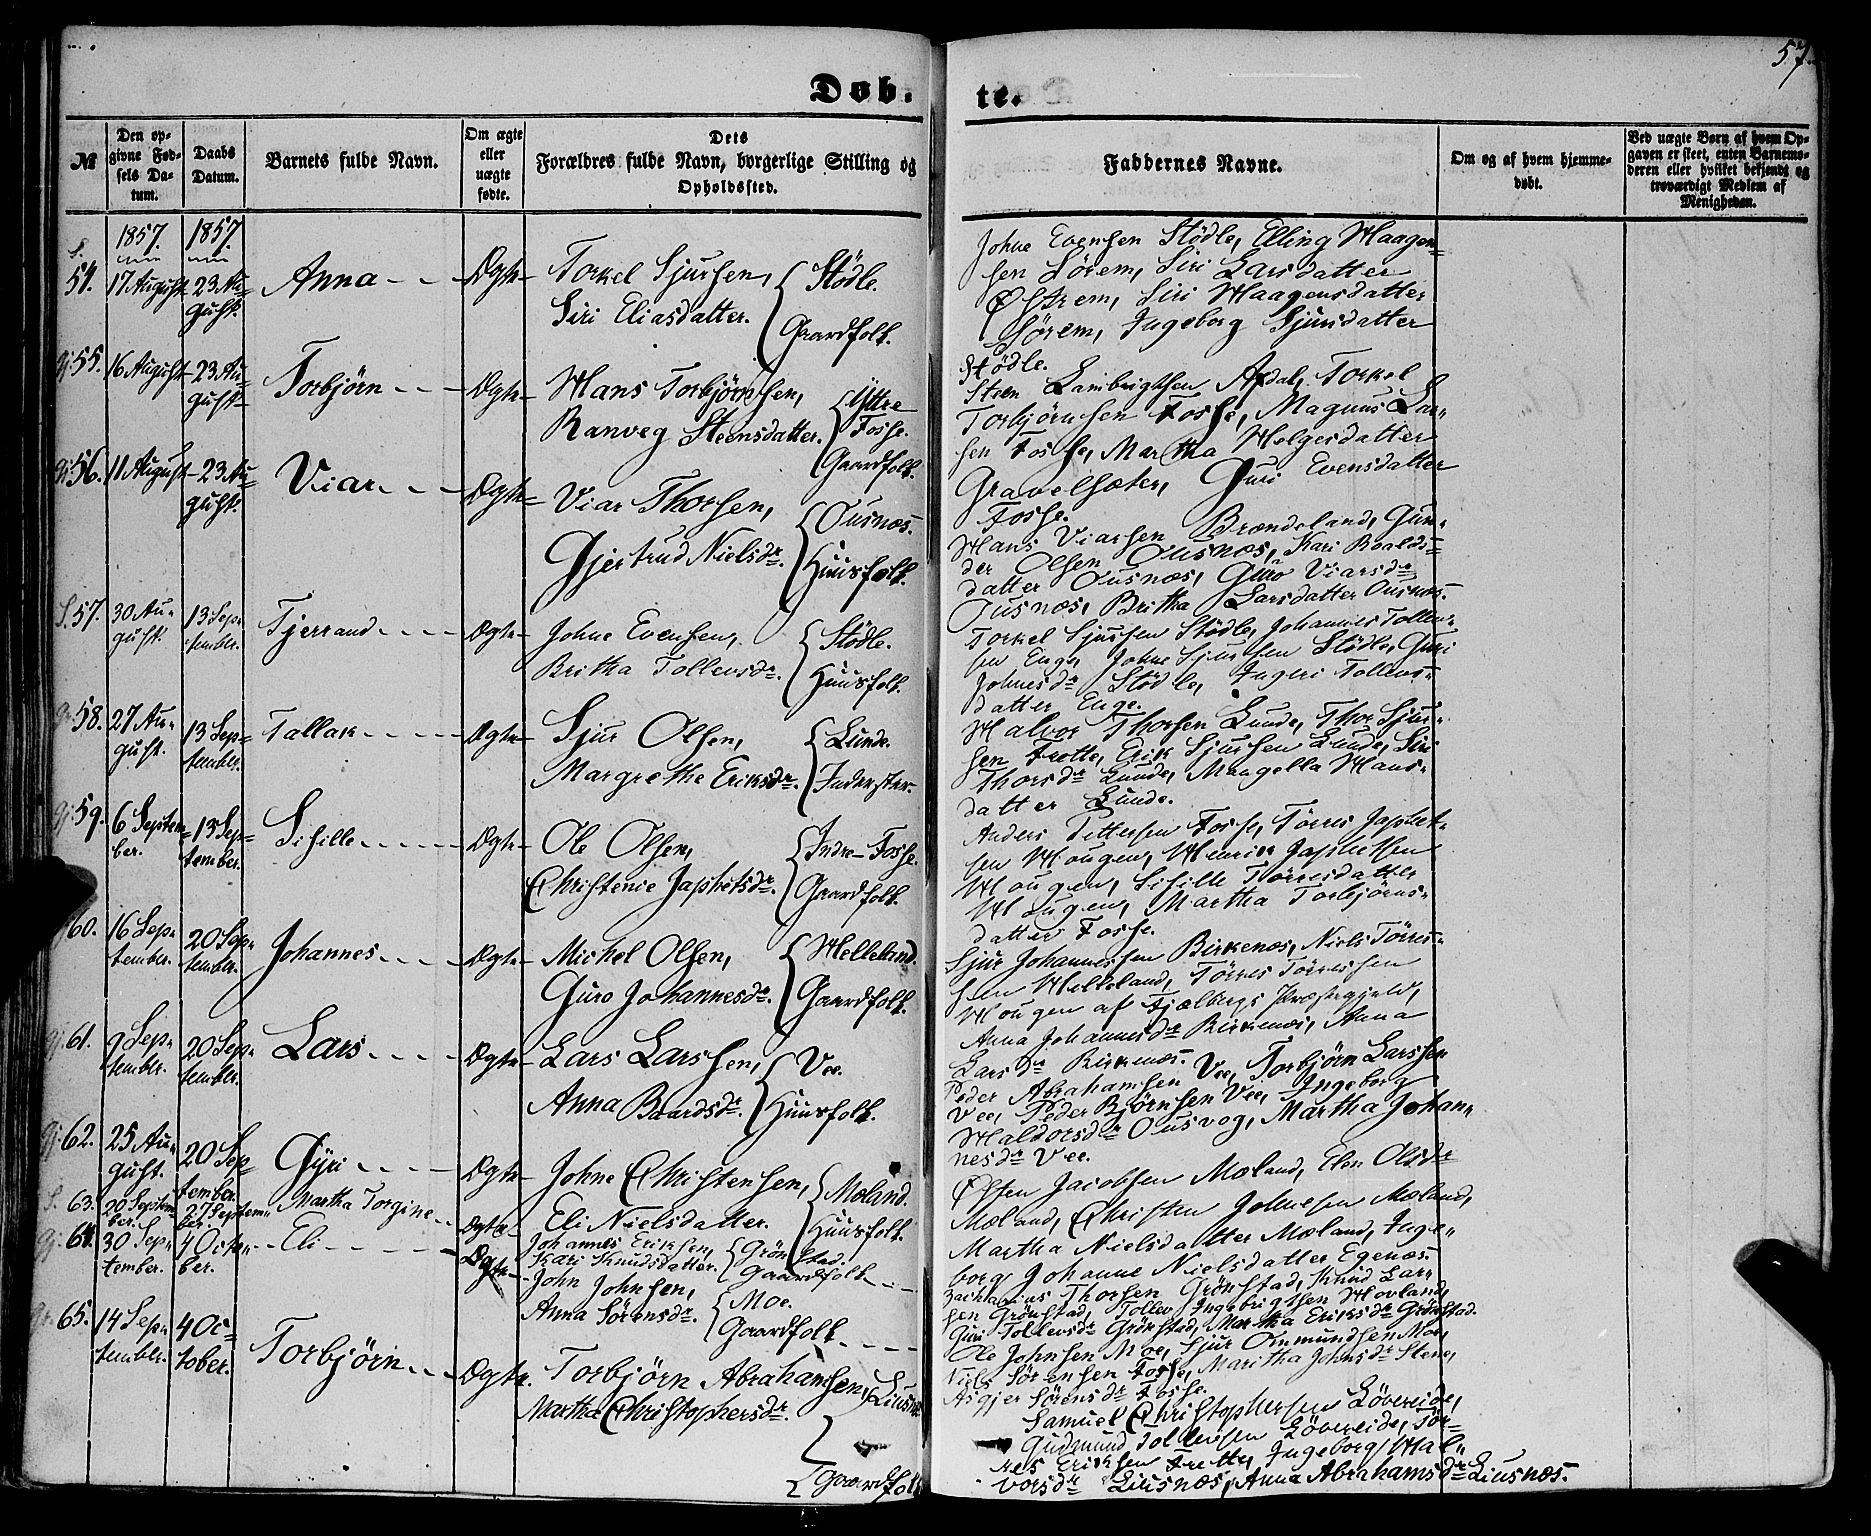 57.
Døb-
te.
№
Den op-
givne Fød-
sels Da-
tum.
Daabs
Datum.
Barnets fulde Navn.
Om ægte
eller
uægte
fødte.
Dets
Forældres fulde Navn, borgerlige Stilling og
Opholdssted.
Faddernes Navne.
Om og af hvem hjemme-
døbt.
Ved uægte Børn af hvem Op-
gaven er skeet, enten Barnemo-
deren eller hvilket bekjendt og
troværdigt Medlem af
Menigheden.
1857. 1857.
S.
54. 17 August 23 Au-
gust. Anna Ægte Torkel Sjursen,
Siri Eliasdatter. Stödle.
Gaardfolk.
Johne Evensen Stödle, Elling Haagen-
sen Sörem, Siri Larsdatter
Östrem, Siri Haagensdatter
Sörem, Ingeborg Sjursdatter
Stödle.
55. 16 August 23 Au-
gust. Torbjörn Ægte Hans Torbjörnsen,
Ranveg Steensdatter. Yttre
Fosse.
Gaardfolk.
Steen Lambrigtsen Axdal, Torkel
Torbjörnsen Fosse, Magnus Lar-
sen Fosse, Martha Helgesdatter
Gravelsæter, Guri Evensdatter
Fosse.
56. 11 August 23 Au-
gust. Viar Ægte Viar Thorsen,
Gjertrud Nielsdr. Ousnæs.
Huusfolk.
Hans Viarsen Brændeland, Gun-
der Olsen Ousnæs, Kari Roalds-
datter Ousnæs, Guro Viarsdr
Ousnæs, Britha Larsdatter Ousnæs.
S. 57. 30 Au-
gust. 13 Sep-
tembr. Tjerrand Ægte Johne Evensen,
Britha Tollevsdr. Stödle.
Huusfolk.
Torkel Sjursen Stödle, Johannes Tollev-
sen Enge, Johne Sjursen Stödle, Guri
Johnesdr Stödle, Ingeri Tollevs-
datter Enge.
58. 27 Au-
gust. 13 Sep-
tembr. Tallak Ægte Sjur Olsen,
Margrethe Eriksdr. Lunde.
Inderster.
Halvor Thorsen Lunde, Thor Sjur-
sen Frette, Erik Sjursen Lunde, Siri
Thorsdr Lunde, Mangella Hans-
datter Lunde.
59. 6 Septem-
ber. 13 Sep-
tember. Sisille Ægte Ole Olsen,
Christenie Japhetsdr. Indre Fosse.
Gaardfolk.
Anders Pettersen Fosse, Törres Japhet-
sen Hougen, Henrik Japhetsen
Hougen, Sisille Törresdatter
Hougen, Martha Torbjörns-
datter Fosse.
60. 16 Sep-
tember. 20 Sep-
tember. Johannes Ægte Michel Olsen,
Guro Johannesdr. Helleland.
Gaardfolk.
Sjur Johannessen Birkenæs, Niels Törres-
sen Helleland, Törres Törressen
Hougen af Fjælbergs Præstegjeld,
Anna Johannesdr Birkenæs, Anna
Larsdr Birkenæs.
61. 9 Sep-
tembr. 20 Sep-
tembr. Lars Ægte Lars Larssen,
Anna Baardsdr. Vee.
Huusfolk.
Peder Abrahamsen Vee, Torbjörn Larssen
Vee, Peder Björnsen Vee, Ingeborg
Haldorsdr Ousvog, Martha Johan-
nesdr Vee.
62. 25 Au-
gust. 20 Sep-
tember. Gyri Ægte Johne Christensen,
Eli Nielsdatter. Moland.
Huusfolk.
Östen Jacobsen Mæland, Elen Olsdr
Mæland, Christen Johnesen Mæland,
Martha Nielsdatter Mæland, Inge-
borg Johanne Nielsdatter Egenæs.
S. 63. 20 Septem-
ber. 27 Septem-
ber. Martha Torgine Ægte Johannes Eriksen,
Kari Knudsdatter. Grönstad.
Gaardfolk
Zacharias Thorsen Grönstad, Knud Lar-
sen Grönstad, Tollev Ingebrigtsen Hovland,
Guri Tollevsdr Grönstad, Martha Eriksdr Grönstad.
64. 30 Sep-
tember. 4 Octo-
ber. Eli Ægte John Johnsen,
Anna Sörensdr. Moe.
Gaardfolk
Ole Johnsen Moe, Sjur Omundsen Moe,
Niels Sörensen Fosse, Maritha Johnsdr Stene,
Asgjer Sörensdr Fosse.
65. 14 Sep-
tembr. 4 Oc-
tober. Torbjörn Ægte Torbjörn Abrahamsen,
Martha Christophersdr. Liusnæs
Gaardfolk
Samuel Christophersen Lövereide,
Gudmund Tollevsen Lövereide, Tör-
res Eriksen Frette, Ingeborg Hal-
vorsdr Liusnæs, Anna Abrahamsdr Liusnæs.